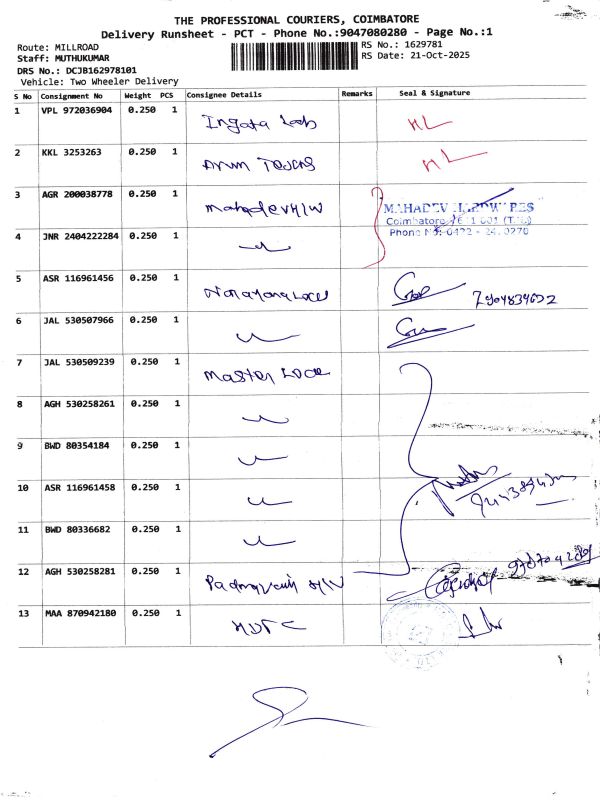 THE PROFESSIONAL COURIERS, COIMBATORE
Delivery Runsheet - PCT - Phone No.:9047080280 - Page No.:1
Route: MILLROAD
RS No.: 1629781
Staff: MUTHUKUMAR
RS Date: 21-Oct-2025
DRS No.: DCJB162978101
Vehicle: Two Wheeler Delivery
S No Consignment No Weight PCS Consignee Details Remarks Seal & Signature
1 VPL 972036904 0.250 1
2 KKL 3253263 0.250 1
3 AGR 200038778 0.250 1 Mahadev H/W MAHADEV HARDWARES
Coimbatore - 641 001 (T.N.)
4 JNR 2404222284 0.250 1 Phone No: 0422 -
5 ASR 116961456 0.250 1 Narayana
6 JAL 530507966 0.250 1
7 JAL 530509239 0.250 1 Master
8 AGH 530258261 0.250 1
9 BWD 80354184 0.250 1
10 ASR 116961458 0.250 1
11 BWD 80336682 0.250 1
12 AGH 530258281 0.250 1 H/W
13 MAA 870942180 0.250 1 HDFC